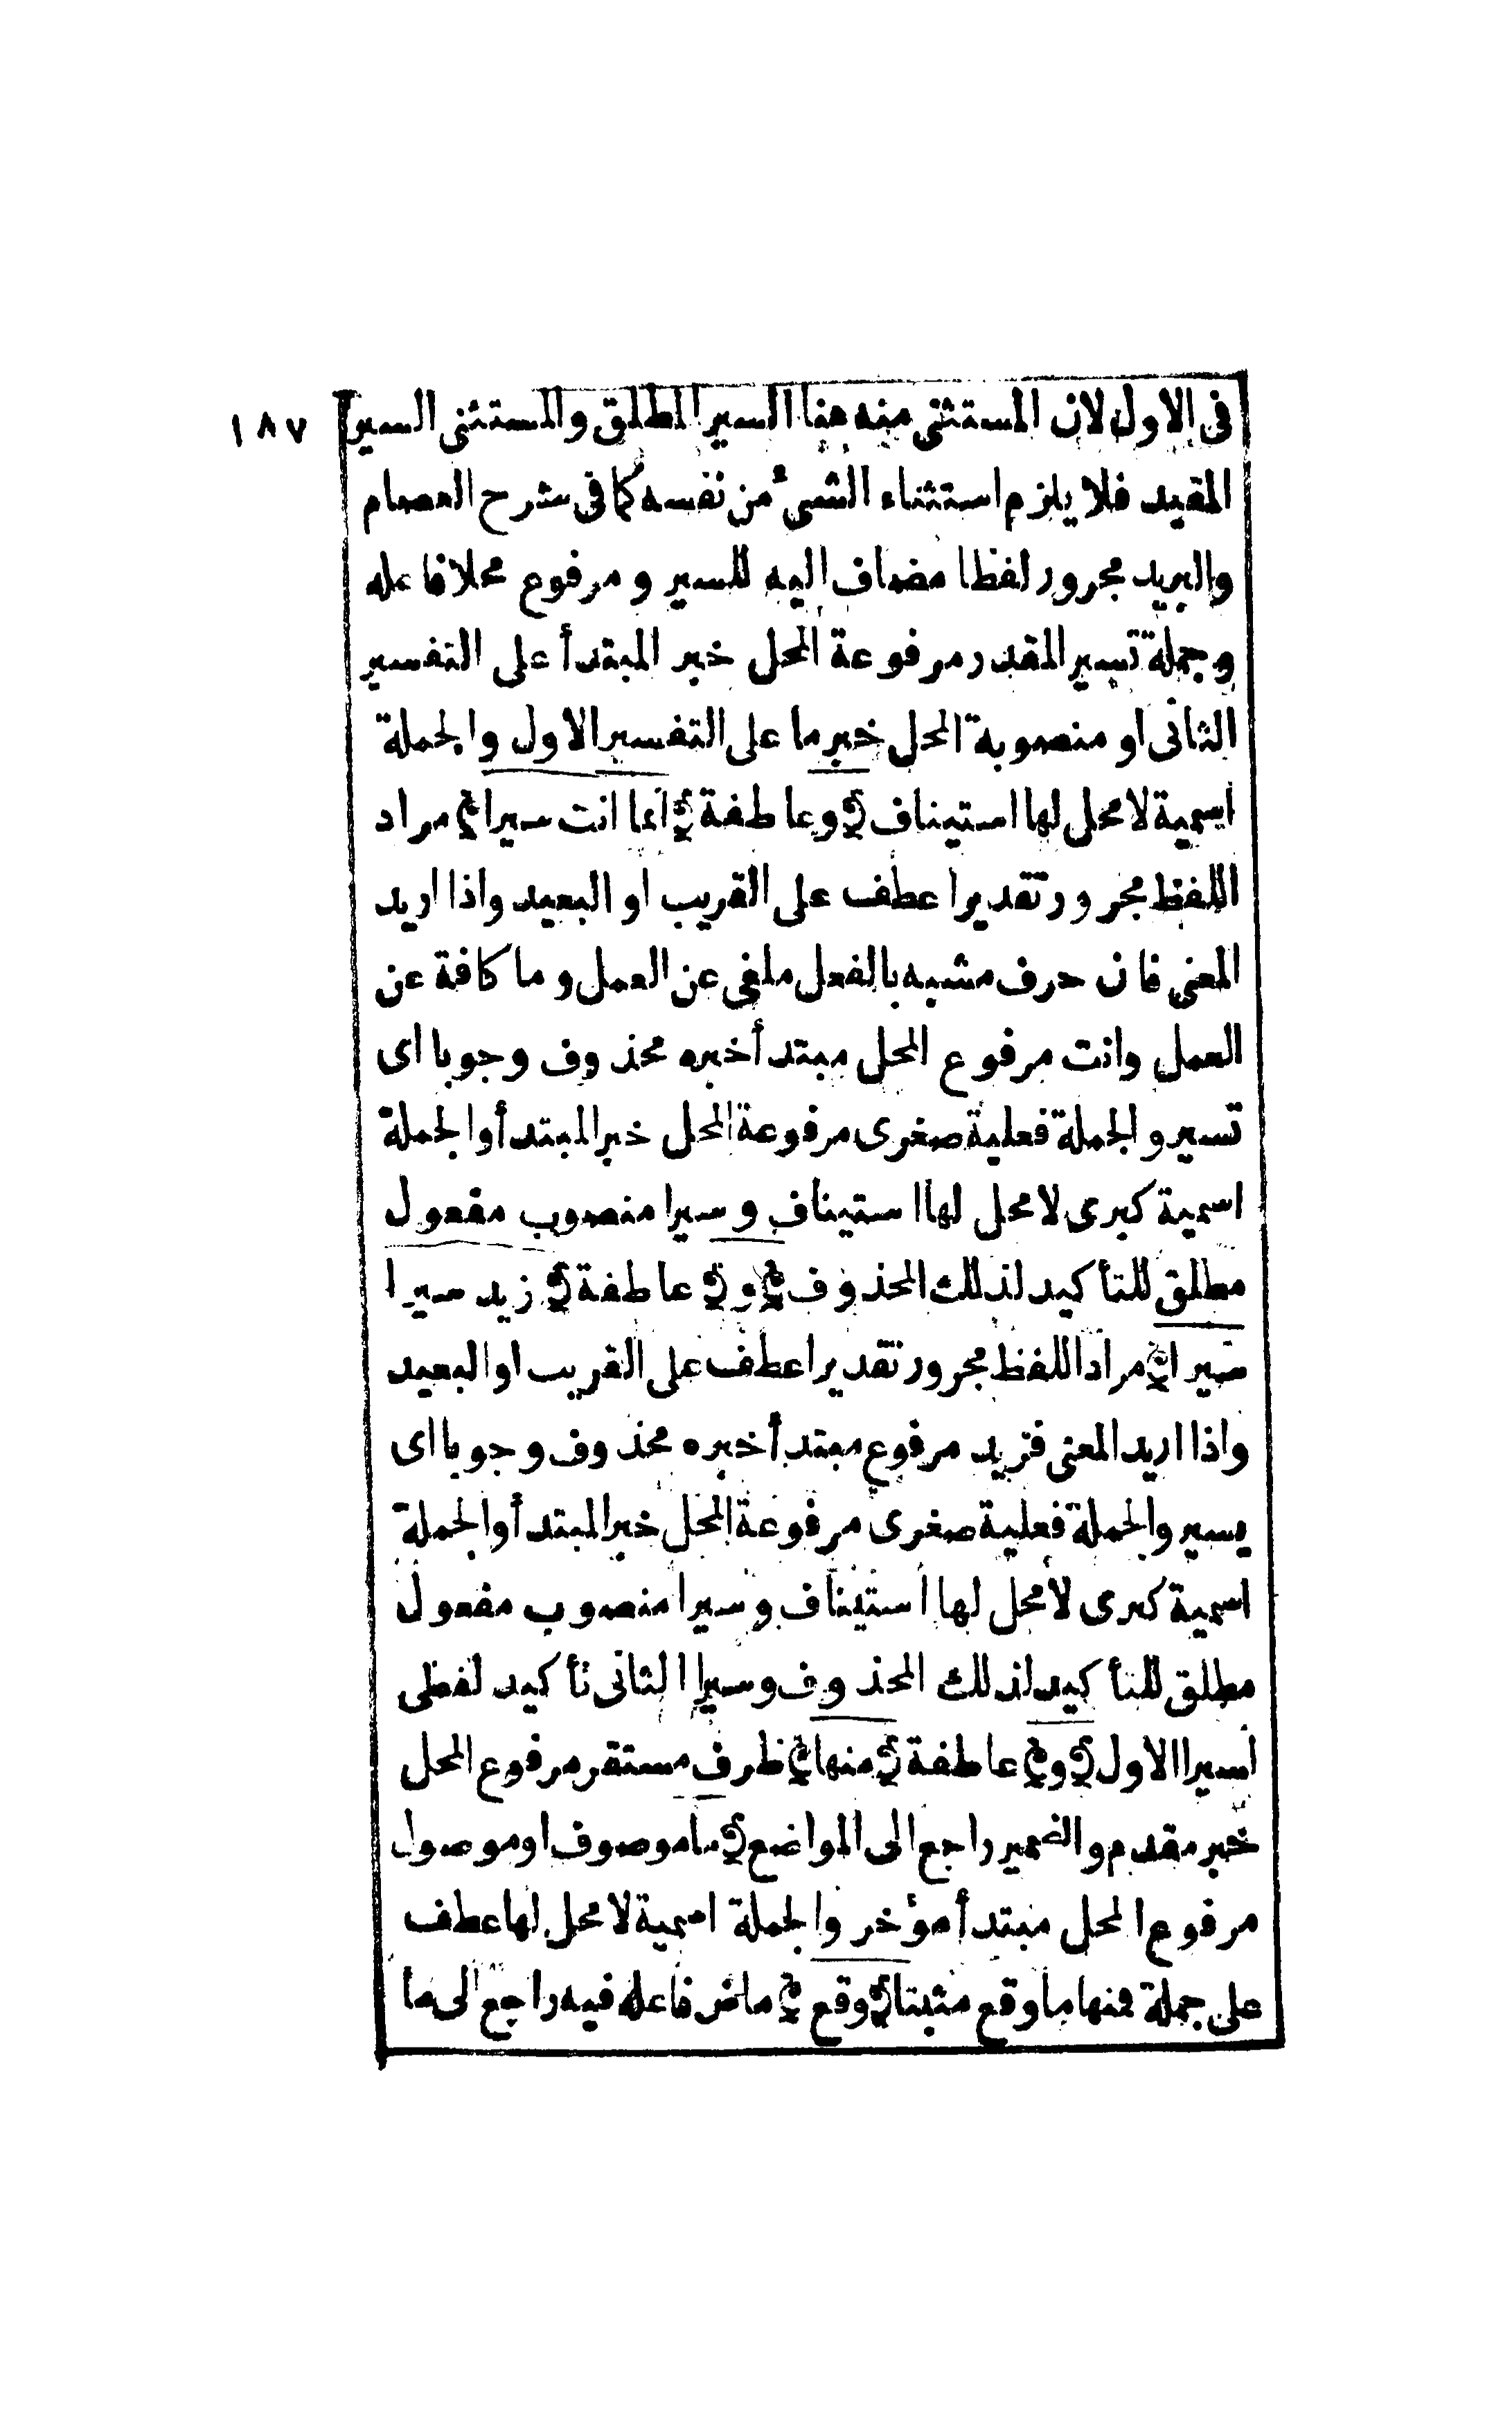 ١٨٧
فى الاول لان المستثنى منه هنا السير المطلق والمستثنى السير
المقيد فلا يلزم استثناء الشئ من نفسه كما فى شرح العصام
والبريد مجرور لفظا مضاف اليه للسير ومرفوع محلا فاعله
وجملة تسير المقدر مرفوعة المحل خبر المبتدأ على التفسير
الثانى او منصوبة المحل خبر ما على التفسير الاول والجملة
اسمية لا محل لها استيناف ﴿و﴾ عاطفة ﴿انما انت سيرا﴾ مراد
اللفظ مجرور تقديرا عطف على القريب او البعيد واذا اريد
المعنى فان حرف مشبه بالفعل ملغى عن العمل وما كافة عن
العمل وانت مرفوع المحل مبتدأ خبره محذوف وجوبا اى
تسير والجملة فعلية صغرى مرفوعة المحل خبر المبتدأ والجملة
اسمية كبرى لا محل لها استيناف وسيرا منصوب مفعول
مطلق للتأكيد لذلك المحذوف ﴿و﴾ عاطفة ﴿زيد سيرا
سيرا﴾ مراد اللفظ مجرور تقديرا عطف على القريب او البعيد
واذا اريد المعنى فزيد مرفوع مبتدأ خبره محذوف وجوبا اى
يسير والجملة فعلية صغرى مرفوعة المحل خبر المبتدأ والجملة
اسمية كبرى لا محل لها استيناف وسيرا منصوب مفعول
مطلق للتأكيد لذلك المحذوف وسيرا الثانى تأكيد لفظى
لسيرا الاول ﴿و﴾ عاطفة ﴿منها﴾ ظرف مستقر مرفوع المحل
خبر مقدم والضمير راجع الى المواضع ﴿ما﴾ موصوف او موصول
مرفوع المحل مبتدأ مؤخر والجملة اسمية لا محل لها عطف
على جملة فمنها ما وقع مثبتا ﴿وقع﴾ ماض فاعله فيه راجع الى ما